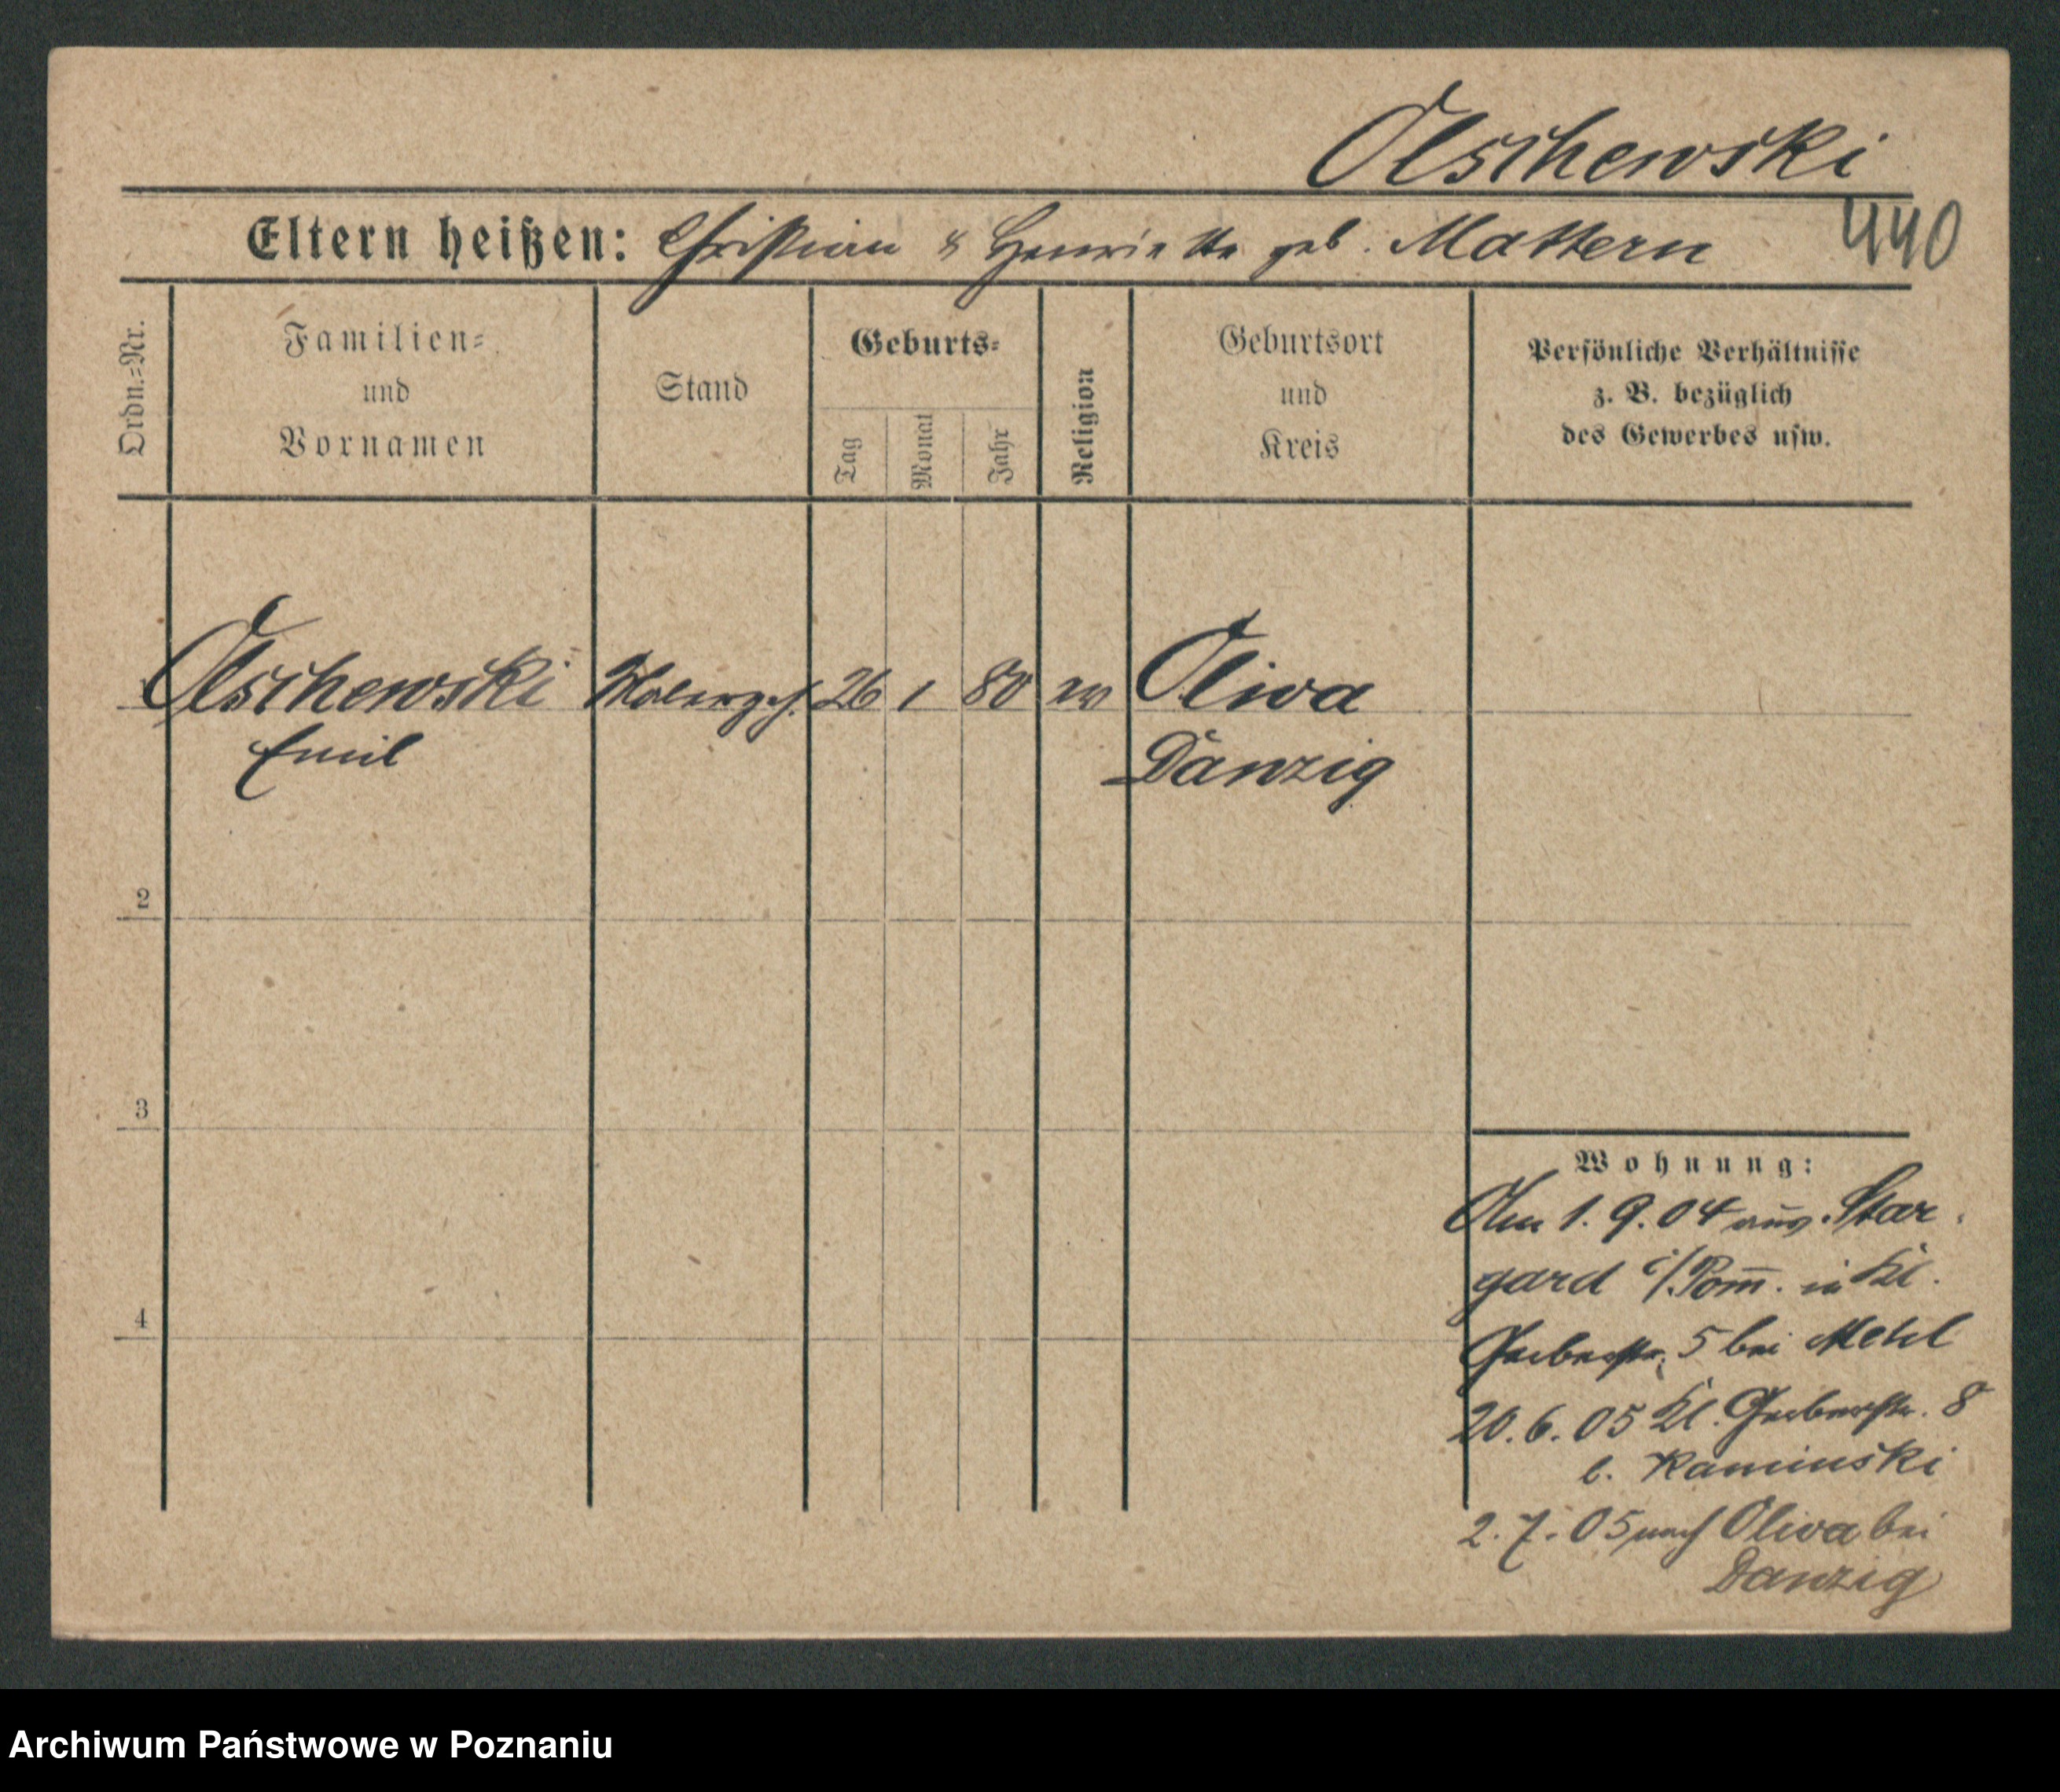 Olschewski
Eltern heißen: Christian & Henriette geb. Mattern
440
Ordn.-Nr.
Familien-
und
Vornamen
Stand
Geburts-
Tag
Monat
Jahr
Religion
Geburtsort
und
Kreis
Persönliche Verhältnisse
z. B. bezüglich
des Gewerbes usw.
Olschewski Malergeh. 26 1 80 ev Oliva
Emil Danzig
2
3
4
Wohnung:
Am 1.9.04 aus Star-
gard i/Pom̅. in Kl.
Gerberstr. 5 bei Mehl
20.6.05 Kl. Gerberstr. 8
b. Kaminski
2.7.05 nach Oliva bei
Danzig
Archiwum Państwowe w Poznaniu